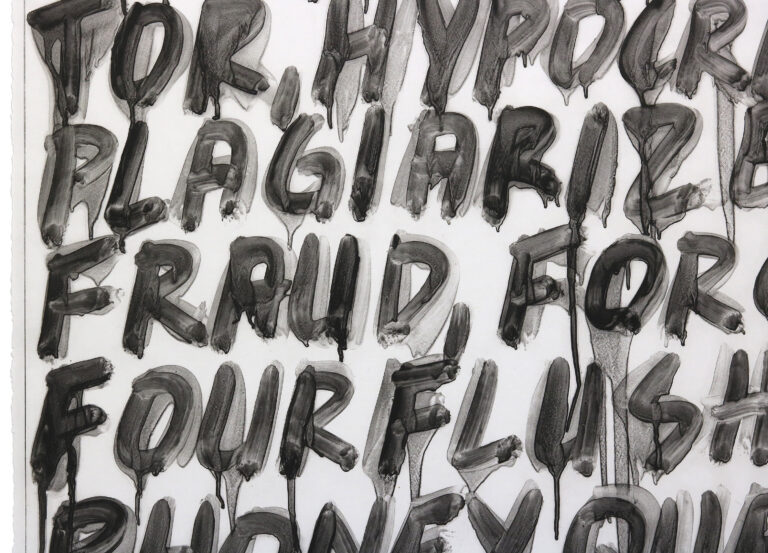 TOR, HYPOCR
PLAGIARIZE
FRAUD, FORG
FOURFLUSH
PHONEY